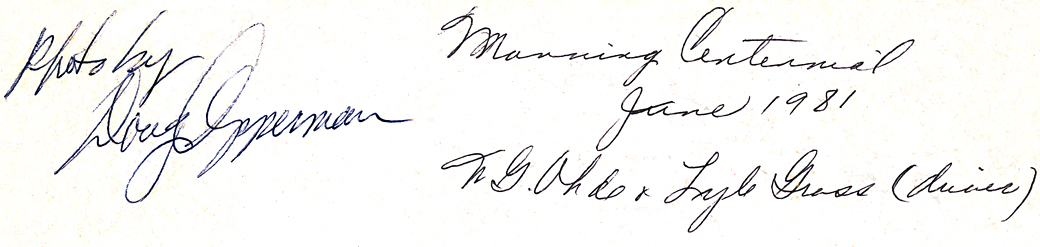 Photo by
Doug Opperman
Manning Centennial
June 1981
W G. Ohde & Lyle Grass (driver)